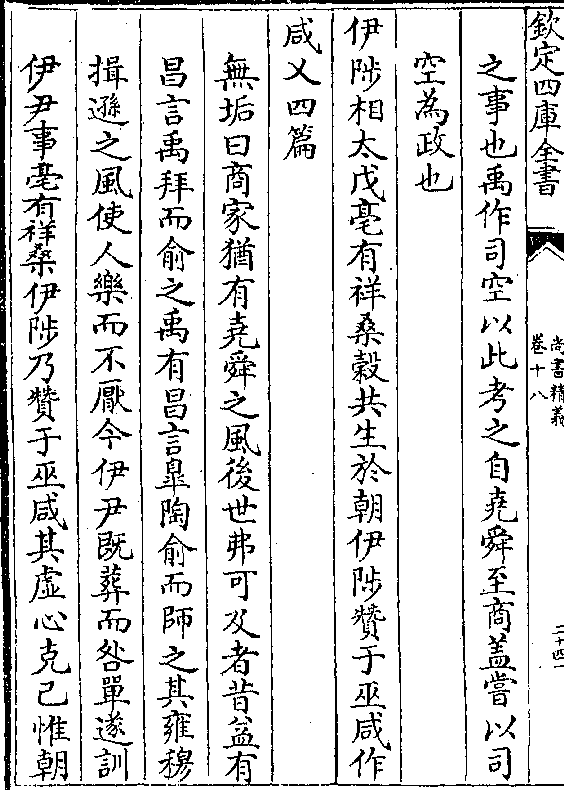 欽定四庫全書
尚書精義
卷十八
二十四
之事也禹作司空以此考之自堯舜至商盖嘗以司
空為政也
伊陟相太戊亳有祥桑榖共生於朝伊陟贊于巫咸作
咸乂四篇
無垢曰商家猶有堯舜之風後世弗可及者昔益有
昌言禹拜而俞之禹有昌言臯陶俞而師之其雍穆
揖遜之風使人樂而不厭今伊尹既葬而咎單遂訓
伊尹事亳有祥桑伊陟乃贊于巫咸其虚心克己惟朝